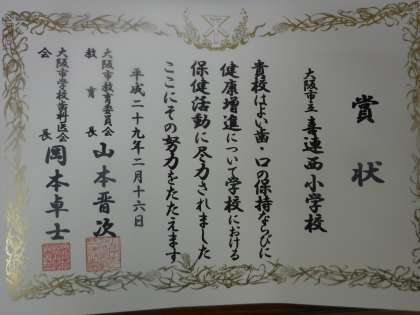 賞状
大阪市立 喜連西小学校
貴校はよい歯・口の保持ならびに
健康増進について学校における
保健活動に尽力されました
ここにその努力をたたえます
平成二十九年二月十六日
大阪市教育委員会
教育長 山本晋次
大阪市学校歯科医会
会長 岡本卓士